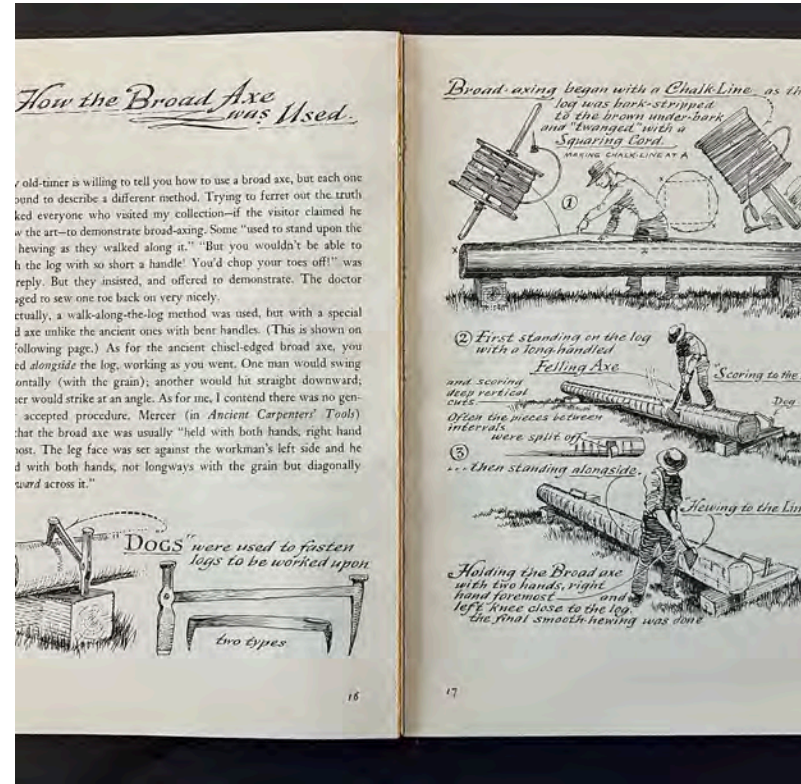 How the Broad Axe
was Used.
old-timer is willing to tell you how to use a broad axe, but each one
ound to describe a different method. Trying to ferret out the truth
ked everyone who visited my collection—if the visitor claimed he
w the art—to demonstrate broad-axing. Some "used to stand upon the
hewing as they walked along it." "But you wouldn't be able to
h the log with so short a handle! You'd chop your toes off!" was
reply. But they insisted, and offered to demonstrate. The doctor
aged to sew one toe back on very nicely.
ctually, a walk-along-the-log method was used, but with a special
d axe unlike the ancient ones with bent handles. (This is shown on
ollowing page.) As for the ancient chisel-edged broad axe, you
ed alongside the log, working as you went. One man would swing
ontally (with the grain); another would hit straight downward;
er would strike at an angle. As for me, I contend there was no gen-
accepted procedure. Mercer (in Ancient Carpenters' Tools)
hat the broad axe was usually "held with both hands, right hand
ost. The leg face was set against the workman's left side and he
d with both hands, not longways with the grain but diagonally
ward across it."
"DOGS" were used to fasten
logs to be worked upon
two types
16
Broad-axing began with a Chalk-Line as th
log was bark-stripped
to the brown under-bark
and "twanged" with a
Squaring Cord.
MAKING CHALK-LINE AT A
1
x
x
x
2 First standing on the log
with a long-handled
Felling Axe
and scoring
deep vertical
cuts
"Scoring to the
Dog
Often the pieces between
intervals
were split off
3
... then standing alongside,
"Hewing to the Lin
Holding the Broad axe
with two hands, right
hand foremost and
left knee close to the log,
the final smooth-hewing was done
17